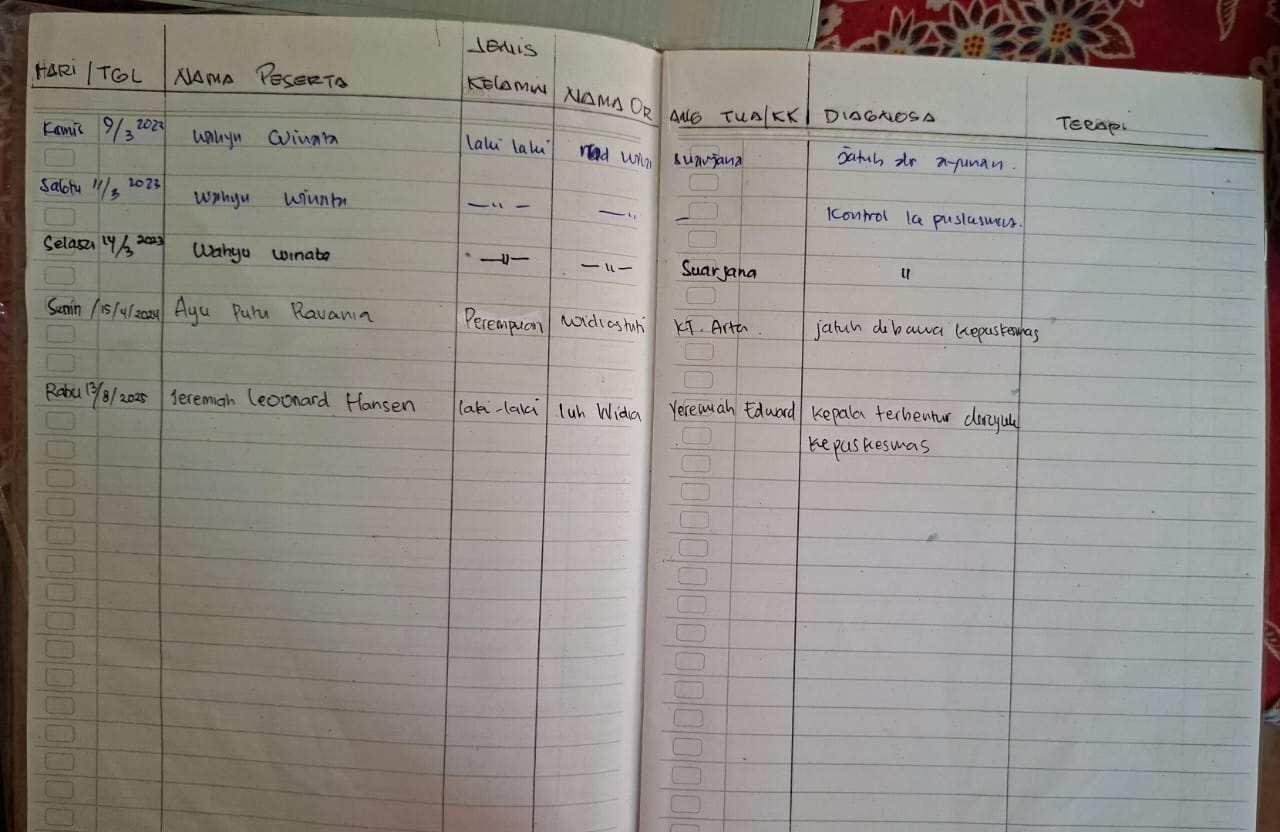 JENIS
HARI / TGL NAMA PESERTA KELAMIN NAMA ORANG TUA/KK DIAGNOSA TERAPI
Kamis 9/3 2023 Wahyu Winata laki laki suarjana Jatuh dr ayunan.
Sabtu 11/3 2023 Wahyu Winata — " — — " — Kontrol ke puskesmas.
Selasa 14/3 2023 Wahyu Winata — " — — " — Suarjana "
Senin / 15/4/2024 Ayu Putu Ravania Perempuan Widiastuti KT. Arta. jatuh dibawa kepuskesmas
Rabu 13/8/2025 Jeremiah Leoonard Hansen laki-laki luh Widia Yeremiah Edward kepala terbentur
kepuskesmas